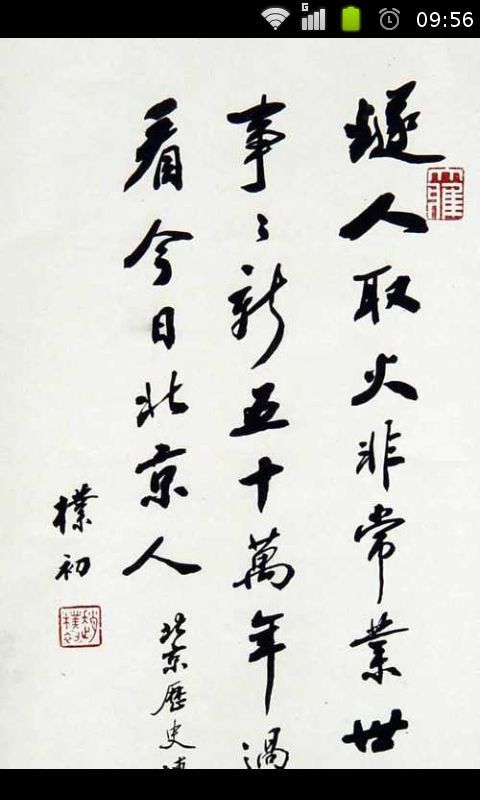 09:56
鐩人取火非常業世
事〻新五十萬年過
看今日北京人
北京歷史
樸初
趙樸初